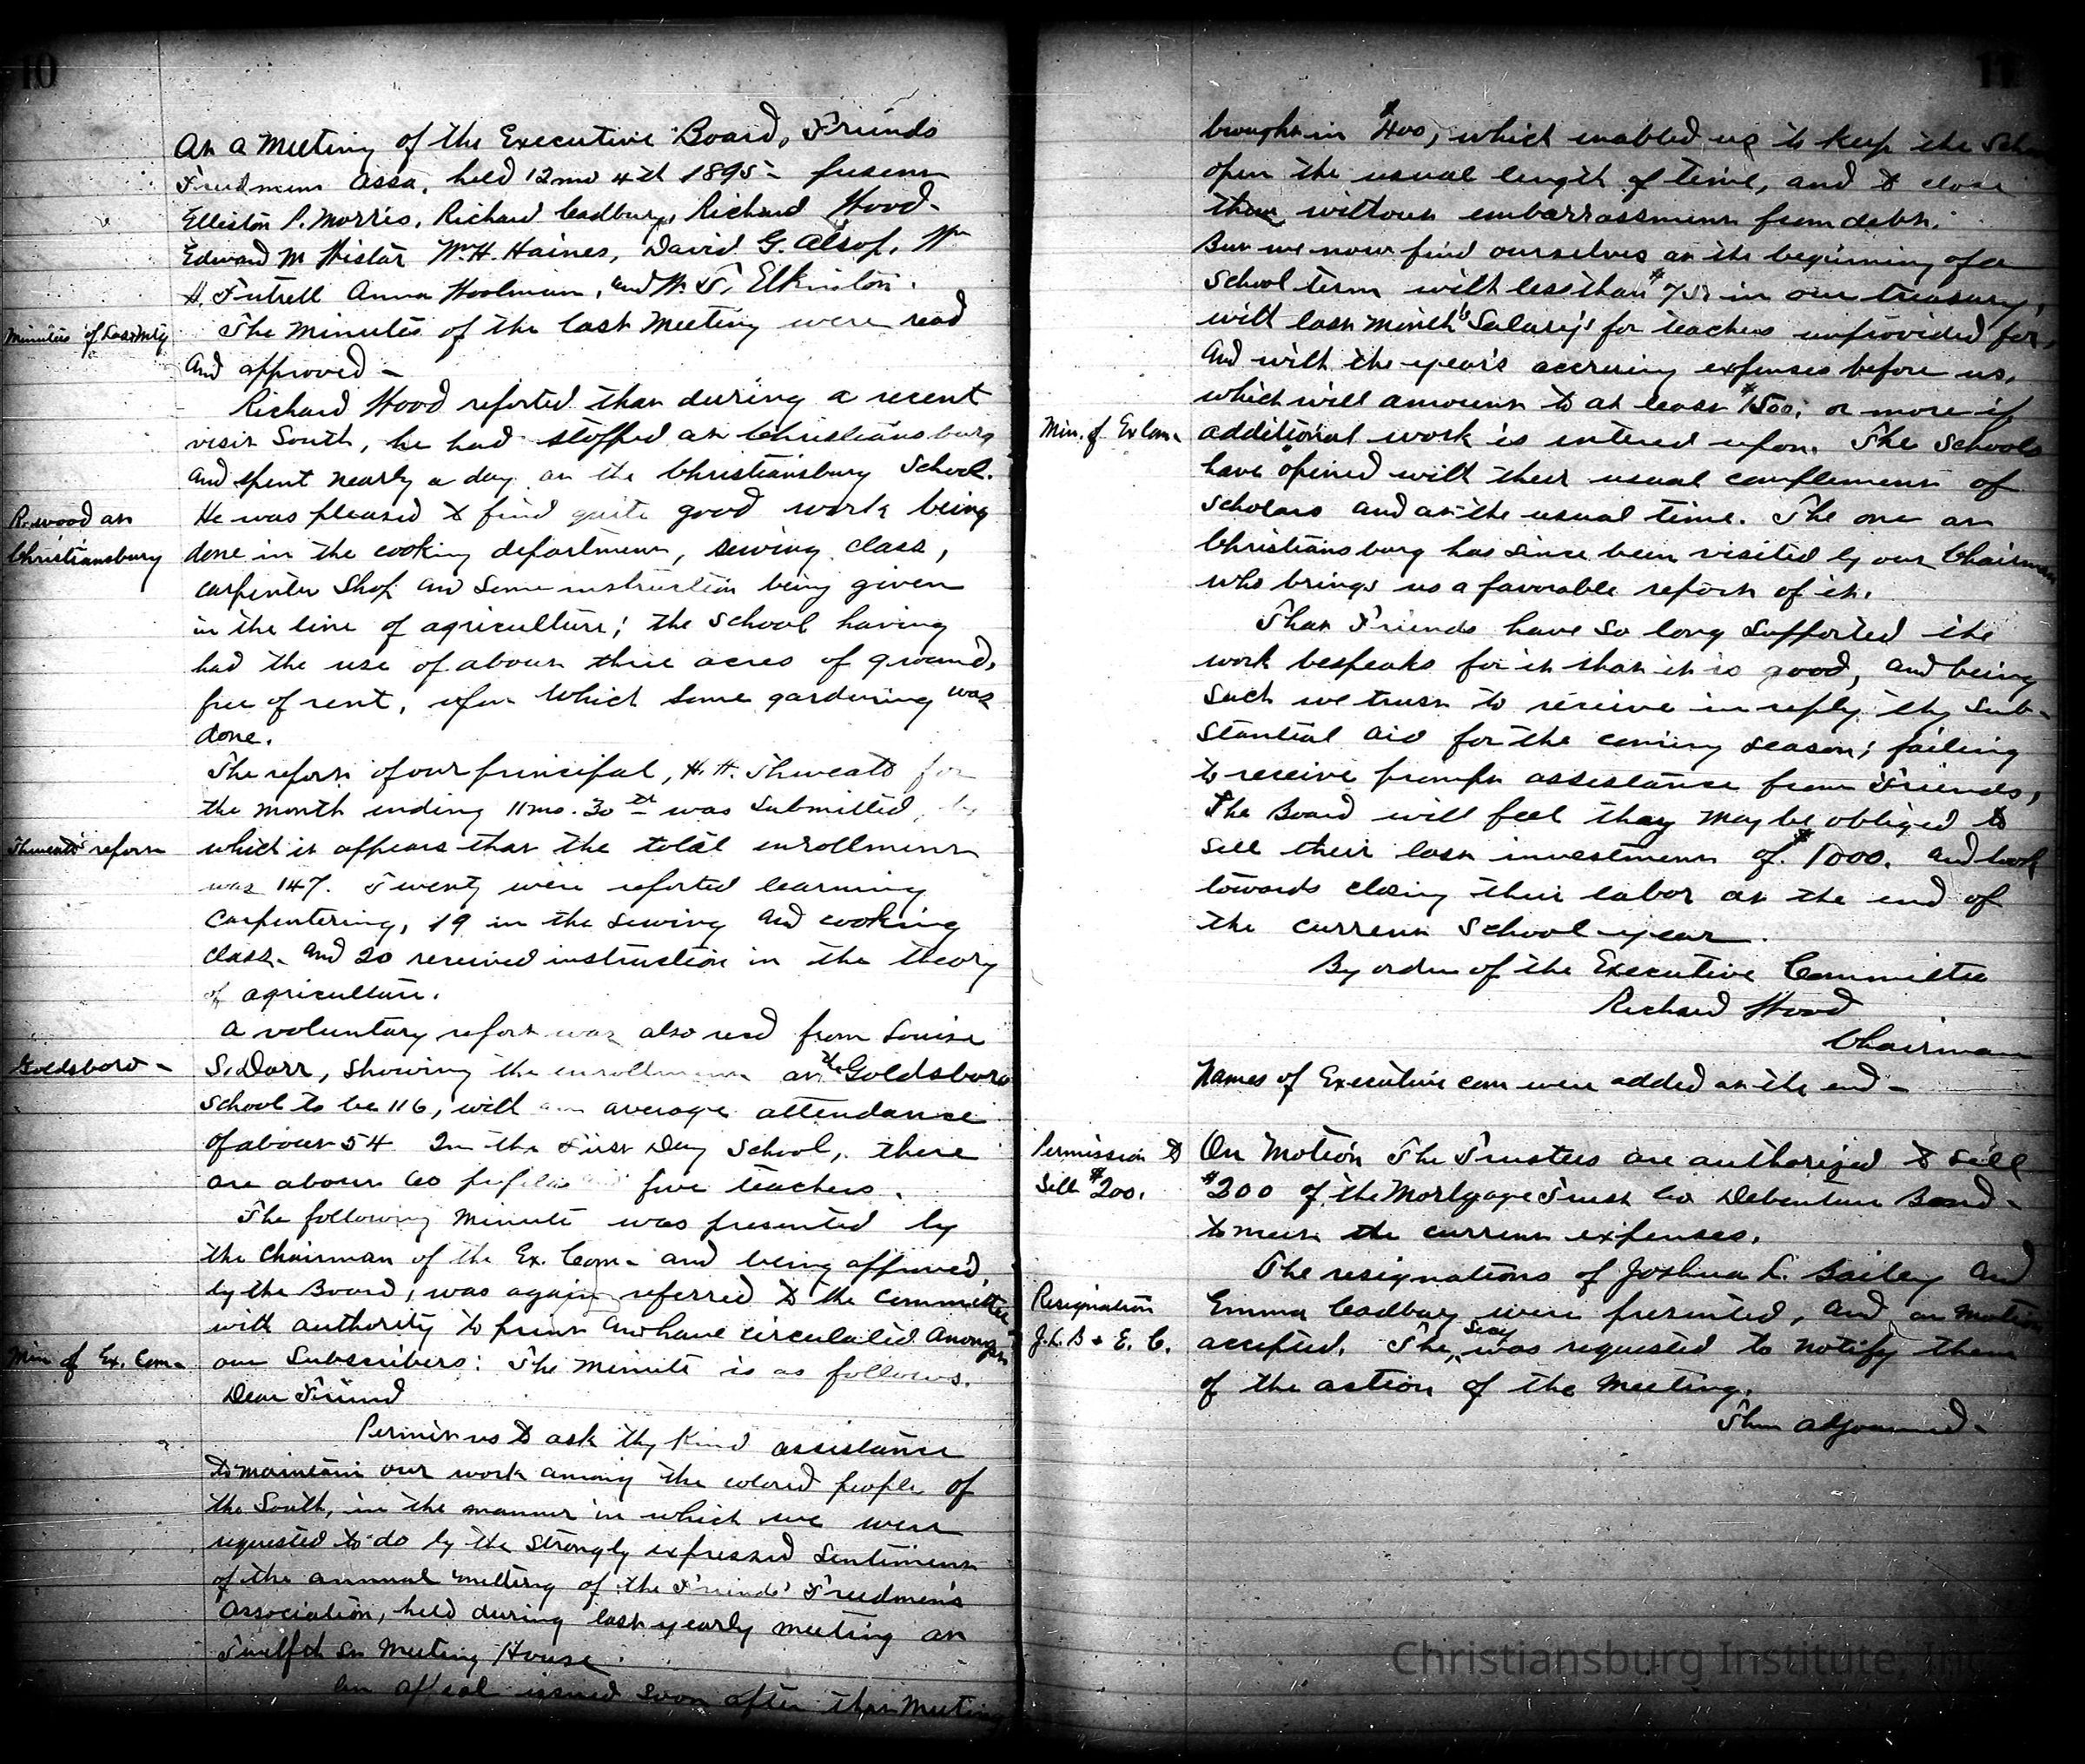 10
At a Meeting of the Executive Board, Friends
Freedmens Assn. held 12mo 4th 1895 - present
Elliston P. Morris, Richard Cadbury, Richard Wood -
Edward M Wistar Wm H. Haines, David G. Alsop, Wm
H. Futrell Anna Woolman, and W. T. Elkinton.
Minutes of Last Mtg
The Minutes of the last Meeting were read
and approved -
Richard Wood reported that during a recent
visit South, he had stopped at Christiansburg
and spent nearly a day at the Christiansburg School.
R. Wood at
Christiansburg
He was pleased to find quite good work being
done in the cooking department, sewing class,
carpenter Shop and some instruction being given
in the line of agriculture; the School having
had the use of about three acres of ground,
free of rent, upon which some gardening was
done.
The report of our principal, H. H. Thweatt for
the month ending 11mo. 30th was submitted, by
Thweatts' report
which it appears that the total enrollment
was 147. Twenty were reported learning
carpentering, 19 in the sewing and cooking
class - and 20 received instruction in the theory
of agriculture.
A voluntary report was also read from Louise
Goldsboro -
S. Dorr, showing the enrollment at the Goldsboro
School to be 116, with an average attendance
of about 54 In the First Day School, there
are about 60 pupils and five teachers.
The following Minute was presented by
the Chairman of the Ex. Com - and being approved,
by the Board, was again referred to the Committee
with authority to print and have circulated amongst
Min of Ex. Com -
our Subscribers: The Minute is as follows.
Dear Friend
Permit us to ask thy Kind assistance
to maintain our work among the colored people of
the South, in the manner in which we were
requested to do by the strongly expressed Sentiment
of the annual meeting of the Friends' Freedmen's
Association, held during last yearly meeting at
Twelfth St Meeting House.
An appeal issued soon after that Meeting
11
brought in $400, which enabled us to keep the School
open the usual length of time, and to close
them without embarrassment from debt.
But we now find ourselves at the beginning of a
School term with less than $75 in our treasury,
with last month's Salary's for teachers unprovided for,
and with the year's accruing expenses before us,
which will amount to at least $1500, or more if
Min. of Ex Com -
additional work is entered upon. The Schools
have opened with their usual complement of
Scholars and at the usual time. The one at
Christiansburg has since been visited by our Chairman
who brings us a favorable report of it.
That Friends have so long supported the
work bespeaks for it that it is good, and being
such we trust to receive in reply thy sub-
stantial aid for the coming season; failing
to receive prompt assistance from Friends,
The Board will feel they may be obliged to
sell their last investment of $1000. and look
towards closing their labor at the end of
the current School year.
By order of the Executive Committee
Richard Wood
Chairman
Names of Executive com were added at the end -
Permission to
Sell $200.
On Motion The Trustees are authorized to sell
$200 of the Mortgage Trust Co Debenture Bond -
to meet the current expenses.
The resignations of Joshua L. Bailey and
Resignation
J. L. B & E. C.
Emma Cadbury were presented, and on motion
accepted. The Secy was requested to notify them
of the action of the Meeting.
Then adjourned -
Christiansburg Institute, Inc